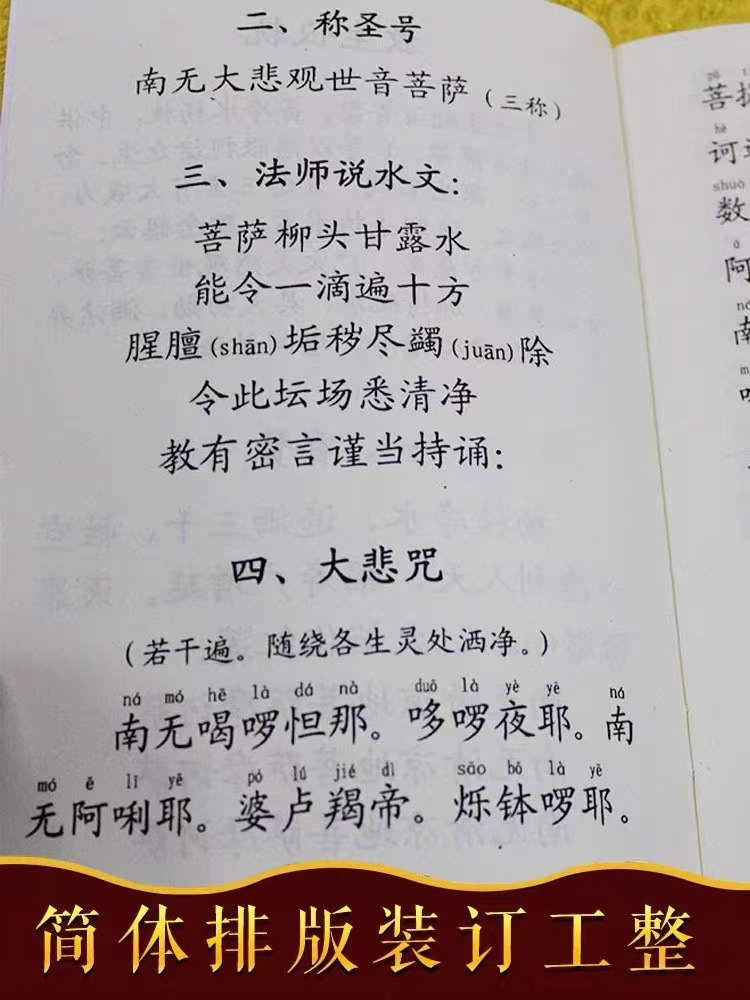 二、称圣号
南无大悲观世音菩萨（三称）
三、法师说水文：
菩萨柳头甘露水
能令一滴遍十方
腥膻(shān)垢秽尽蠲(juān)除
令此坛场悉清净
教有密言谨当持诵：
四、大悲咒
（若干遍。随绕各生灵处洒净。）
ná mó hē là dá nà duō là yè yē ná
南无喝啰怛那。哆啰夜耶。南
mó ē lī yē pó lú jié dì sāo bō là yē
无阿唎耶。婆卢羯帝。烁钵啰耶。
菩
hē
诃
shuò
数
阿
南
简体排版装订工整